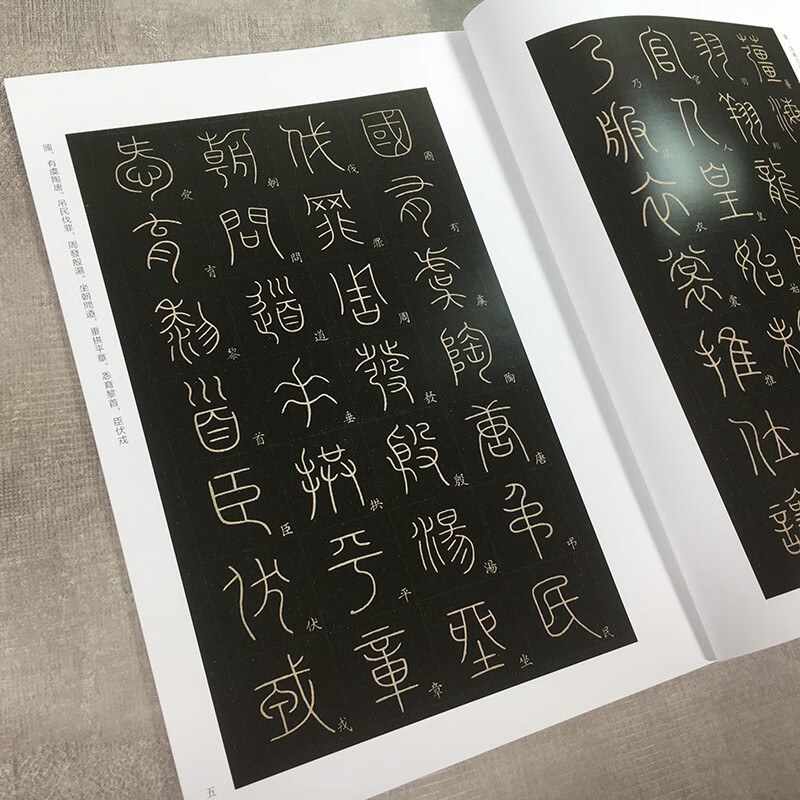 薑海
羽翔龍
官人皇始
乃服衣裳推位讓
國有虞陶唐弔民
伐罪周發殷湯坐
朝問道垂拱平章
愛育黎首臣伏戎
國，有虞陶唐。吊民伐罪，周發殷湯。坐朝問道，垂拱平章。愛育黎首，臣伏戎
五